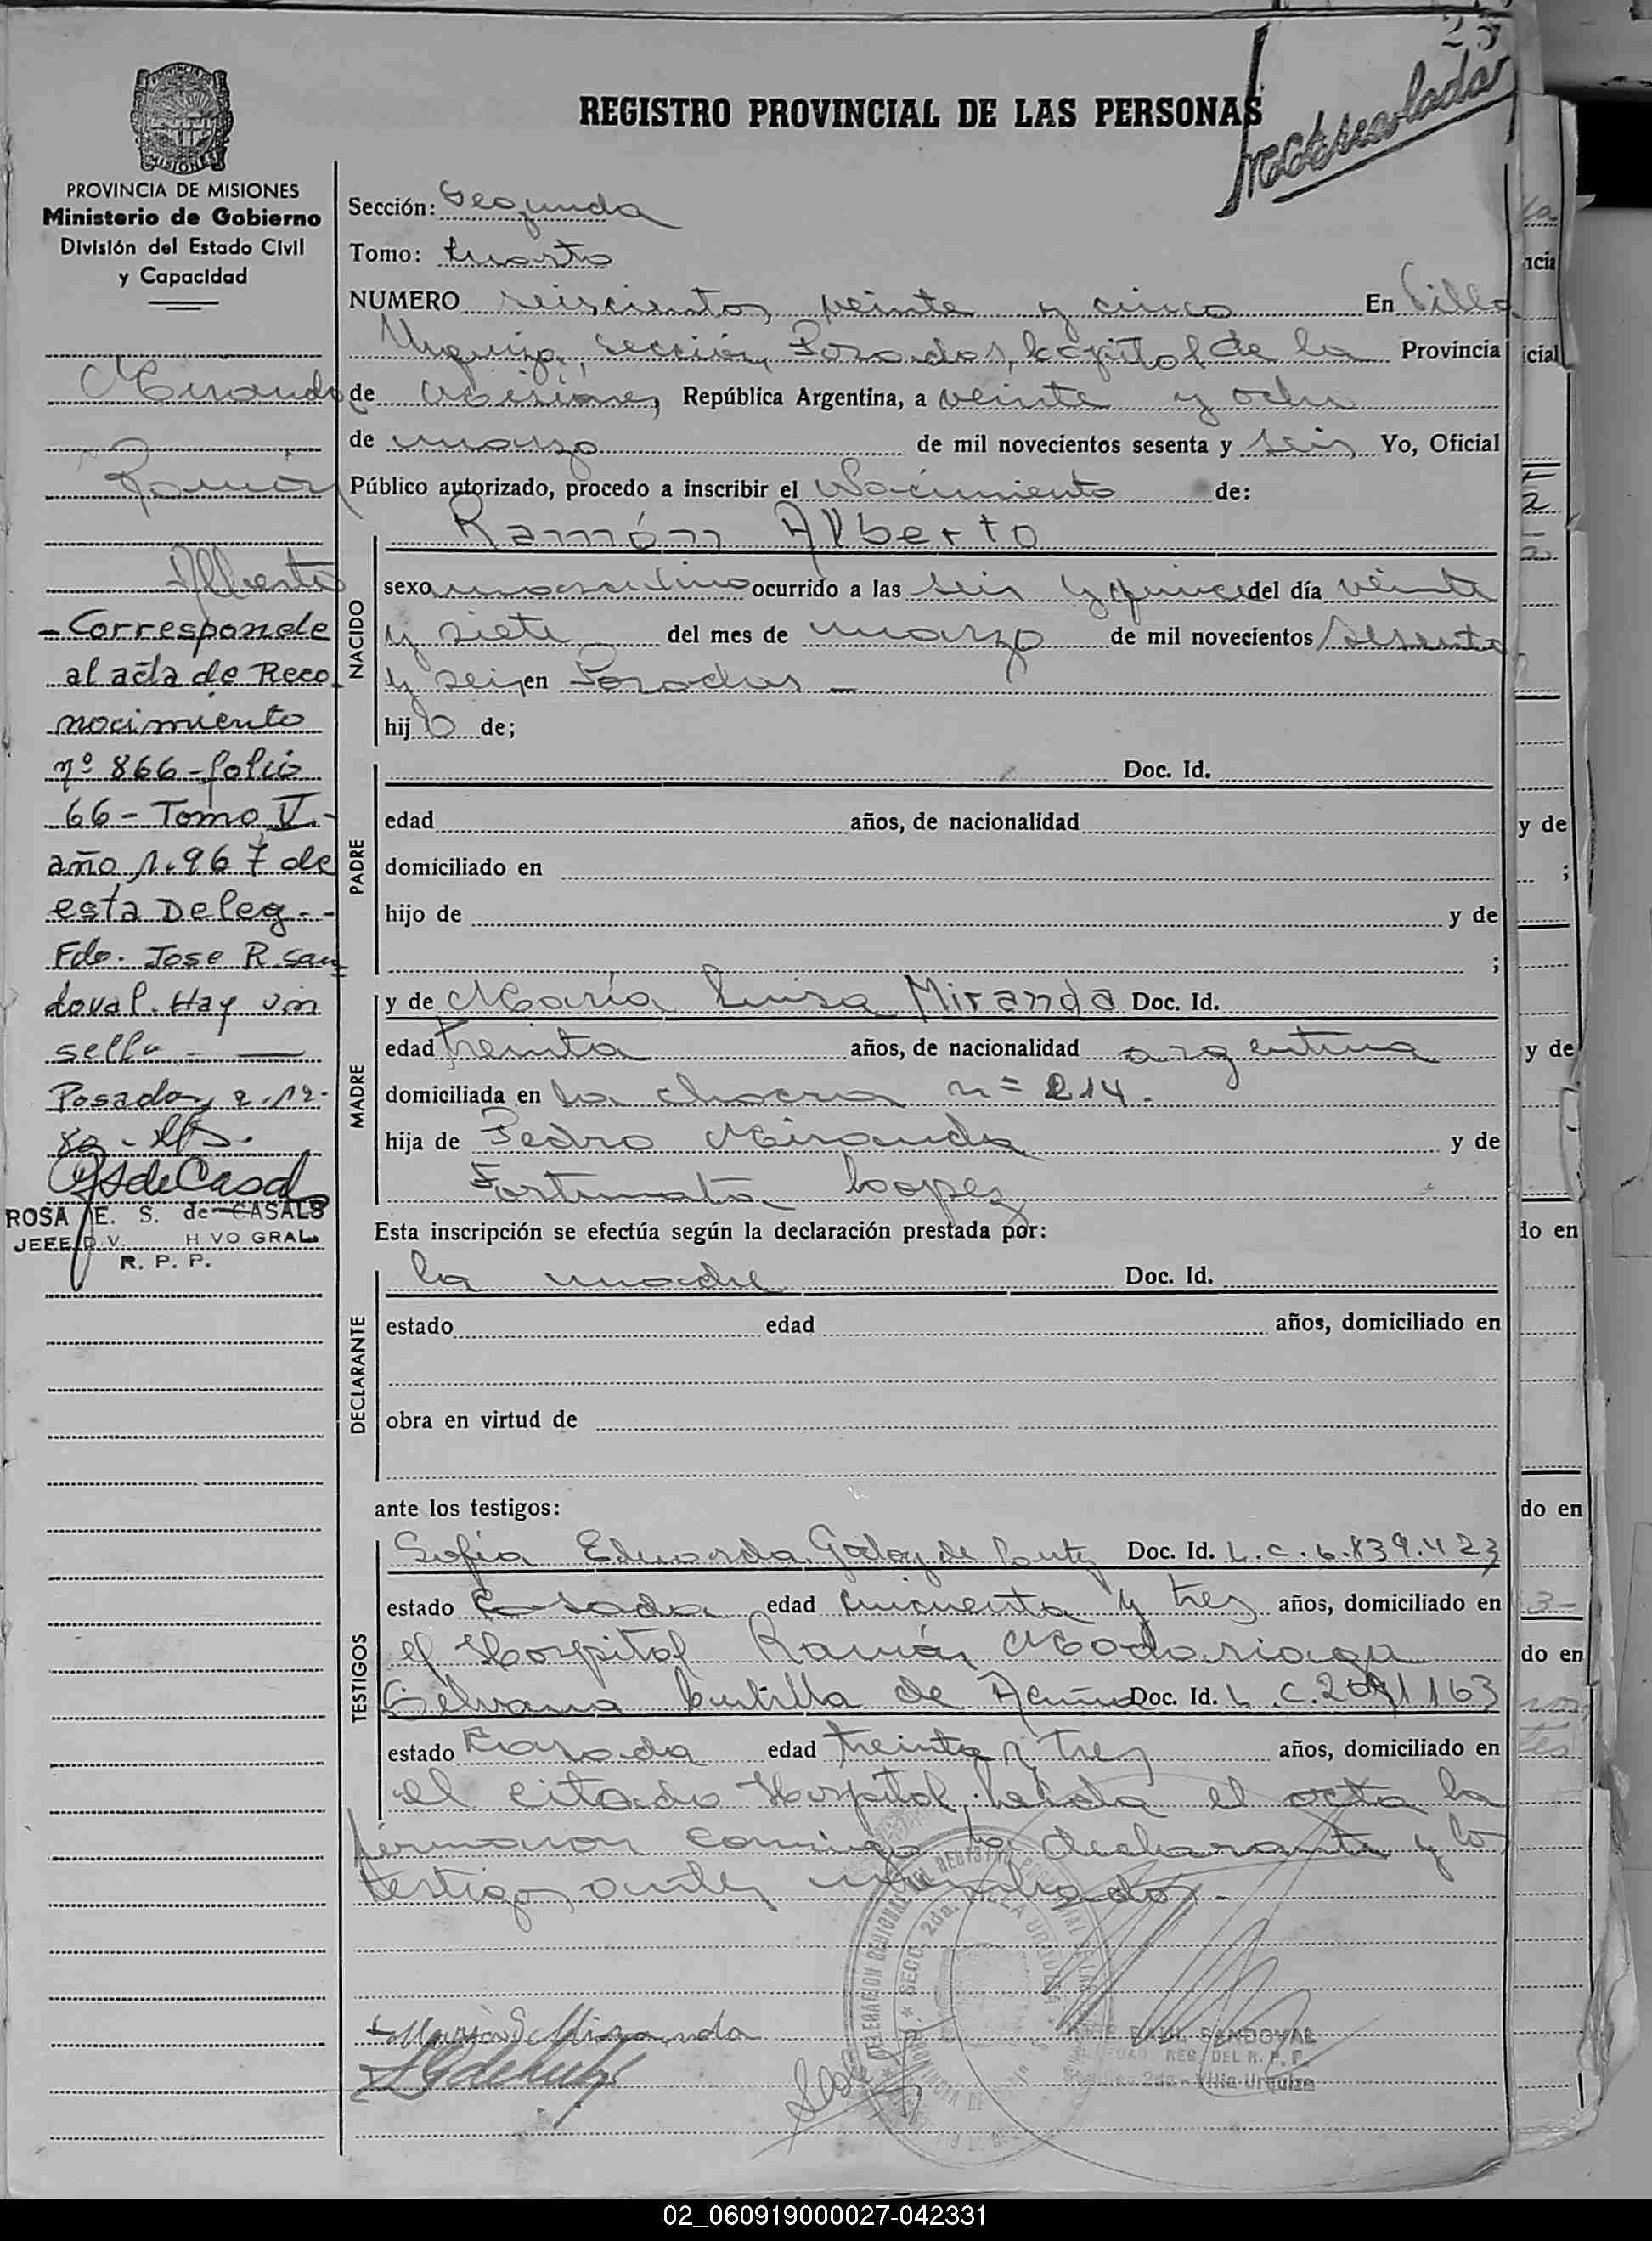 25
Inmatriculado
REGISTRO PROVINCIAL DE LAS PERSONAS
PROVINCIA DE MISIONES
Ministerio de Gobierno
División del Estado Civil
y Capacidad
Miranda
Ramón
Alberto
- Corresponde
al acta de Reco
nocimiento
nº 866 - folio
66 - Tomo V.-
año 1.967 de
esta Deleg.-
Fdo. Jose R San
doval. Hay un
sello -
Posadas, 2.12.
ROSA E. S. de CASALS
JEFE DIV. H VO GRAL.
R. P. P.
Sección: Segunda
Tomo: Cuarto
NUMERO seiscientos veinte y cinco En Villa
Urquiza, sección, Posadas, capital de la Provincia
de Misiones, República Argentina, a veinte y ocho
de marzo de mil novecientos sesenta y seis Yo, Oficial
Público autorizado, procedo a inscribir el Nacimiento de:
NACIDO
Ramón Alberto
sexo masculino ocurrido a las seis y quince del día veinte
y siete del mes de marzo de mil novecientos sesenta
y seis en Posadas -
hijo de;
PADRE
Doc. Id.
edad años, de nacionalidad
domiciliado en
hijo de y de
;
MADRE
y de María Luisa Miranda Doc. Id.
edad treinta años, de nacionalidad argentina
domiciliada en la chacra n= 214.
hija de Pedro Miranda y de
Fortunata Lopez
Esta inscripción se efectúa según la declaración prestada por:
DECLARANTE
la madre Doc. Id.
estado edad años, domiciliado en
obra en virtud de
ante los testigos:
TESTIGOS
Sofia Eduarda Godoy de Doc. Id. L.C.6.839.423
estado Casada edad cincuenta y tres años, domiciliado en
el Hospital Ramón Madariaga
de Acuña Doc. Id. L.C.
estado Casada edad treinta y tres años, domiciliado en
el citado Hospital, leida el acta la
firmaron conmigo la declarante y los
testigos antes nombrados.-
María L Miranda
RAUL SANDOVAL
REG. DEL R. P. P.
2da - Villa Urquiza
02_060919000027-042331